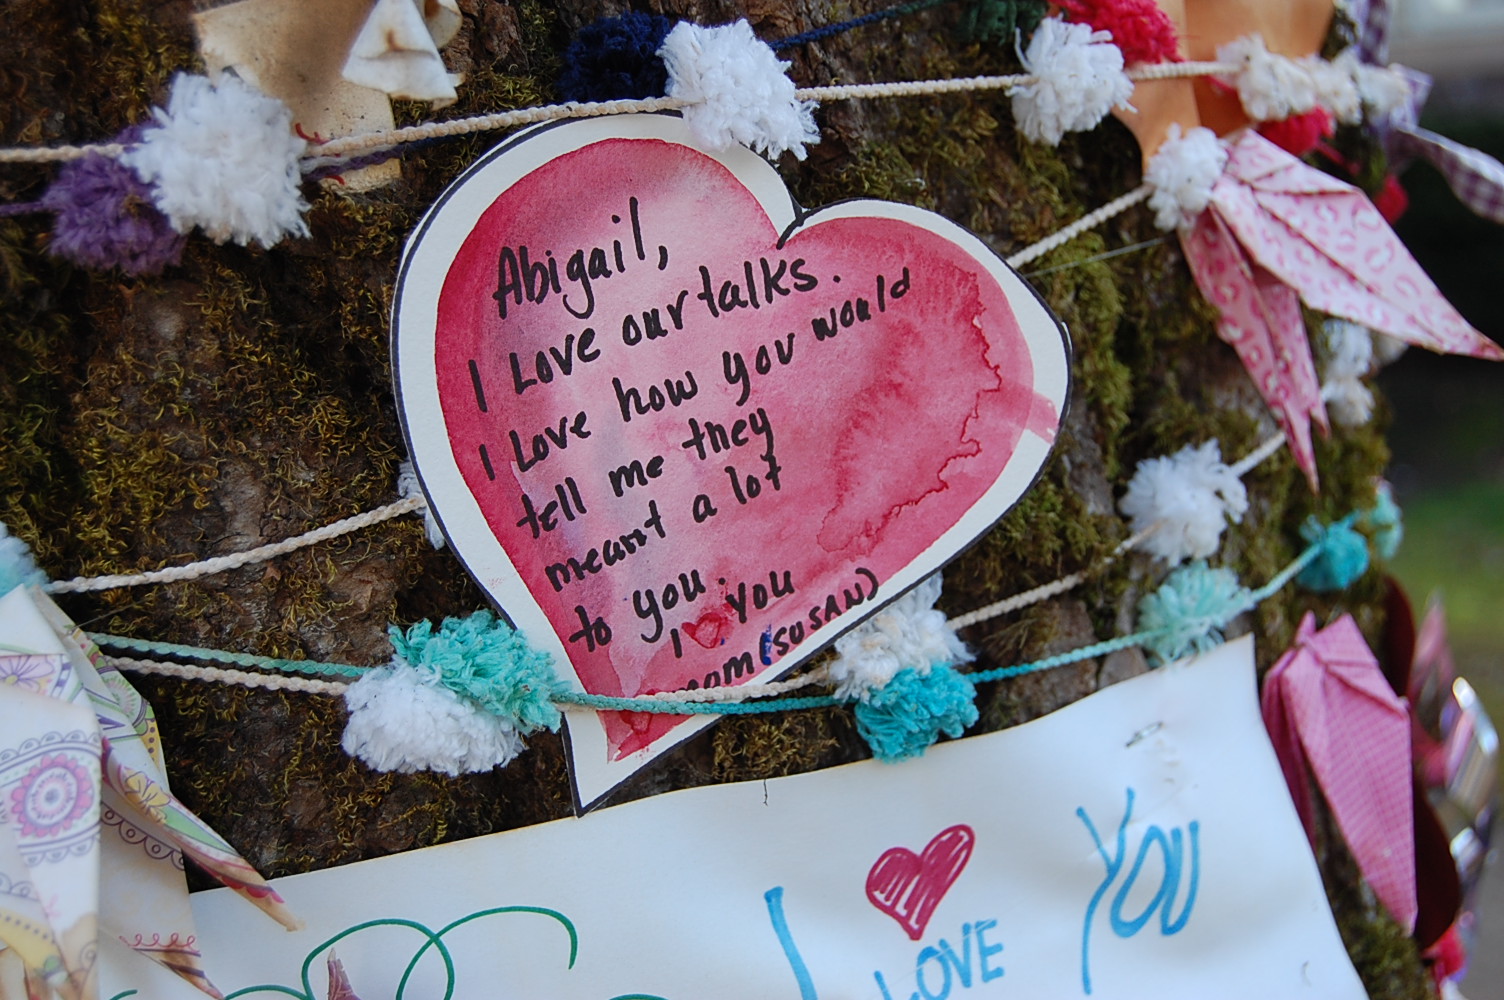 Abigail,
I Love our talks.
I Love how you would
tell me they
meant a lot
to you.
I ♥ you
mom (SUSAN)
I LOVE YOU